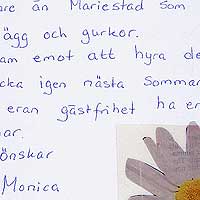 are än Mariestad som
ägg och gurkor.
am emot att hyra de
cka igen nästa Sommar
eran gästfrihet ha er
mar.
önskar
Monica